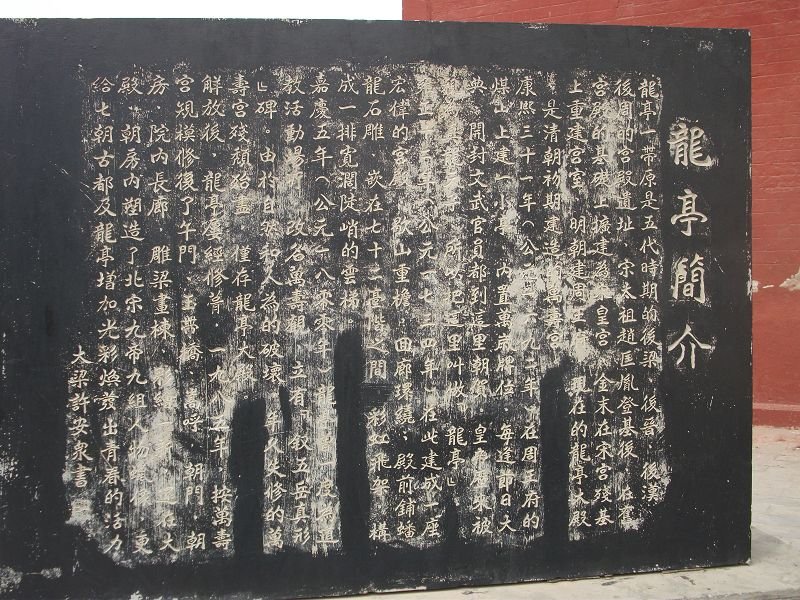 龍亭簡介
龍亭一帶原是五代時期的後梁 後晉 後漢
後周的宮殿遺址 宋太祖趙匡胤登基後 在
宮殿的基礎上擴建為 皇宮 金末在宋宮殘基
上重建宮室 明朝建周王 現在的龍亭大殿
是清朝初期建造的萬壽宮
康熙三十一年（公 九二年 在周王府的
煤山上建一 內置萬 牌位 每逢節日大
典 開封文武官員都到這里朝賀 皇 被
所以把這里叫做「龍亭」
年（公元一七三四年 在此建成一座
宏偉的宮殿 歇山重檐 曲廊環繞；殿前鋪蟠
龍石雕 嵌在七十二 之間 彩虹飛架 構
成一排寬濶陡峭的雲梯
嘉慶五年（公元一八零零年）
教活動場所 改名萬壽觀 立有「叙五岳真形
」碑 由於自然和人為的破壞 年久失修的萬
壽宮殘頹殆盡 僅存龍亭大殿
解放後，龍亭屢經修葺．一九八五年 按萬壽
宮規模修復了午門 玉帶橋 嵩呼 朝門 朝
房．院內長廊 雕梁畫棟 在大
殿．朝房內塑造了北宋九帝九組人物 更
給七朝古都及龍亭增加光彩 煥發出青春的活力
大梁許安泉書